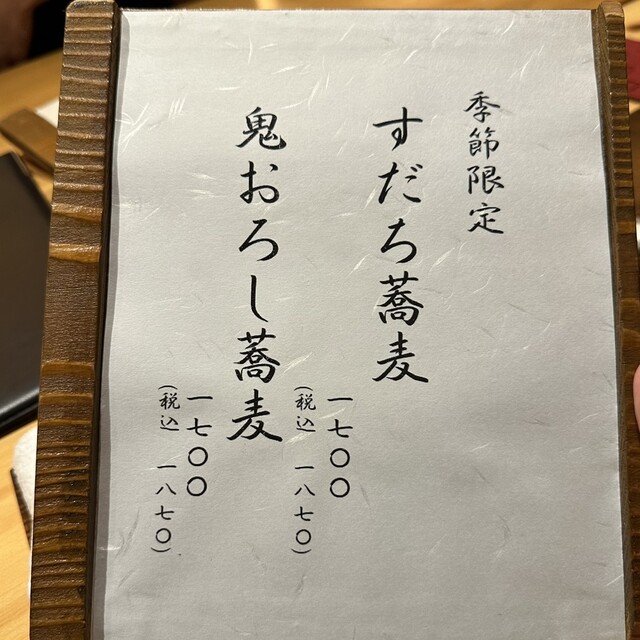 季節限定
すだち蕎麦
一七〇〇
(税込 一八七〇)
鬼おろし蕎麦
一七〇〇
(税込 一八七〇)